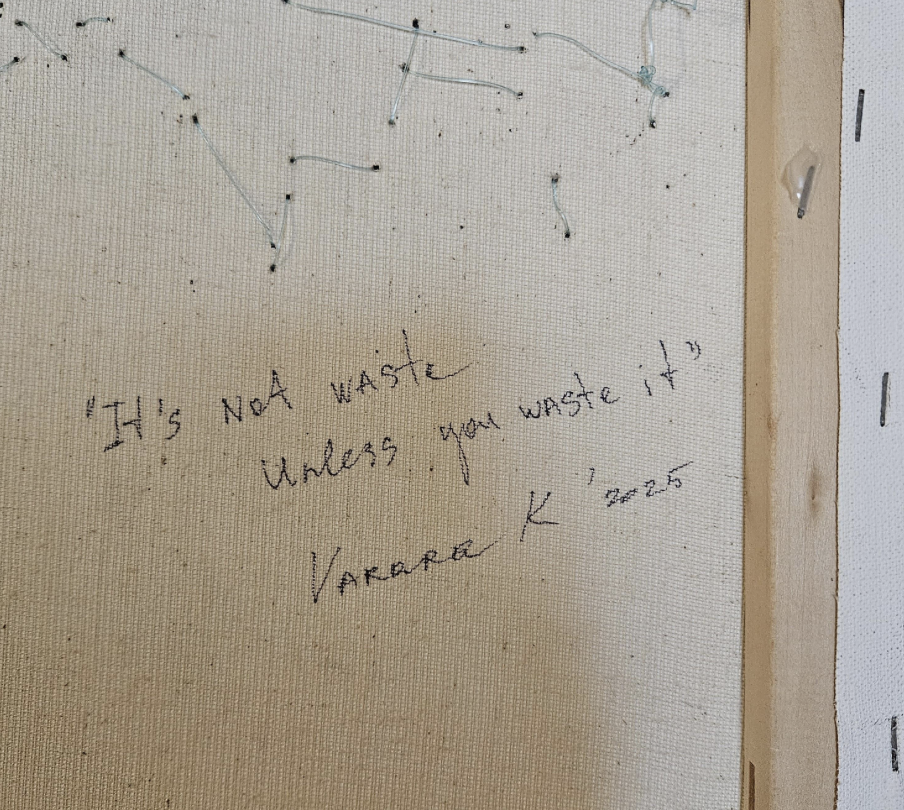 "It's Not waste
Unless you waste it"
K '2025